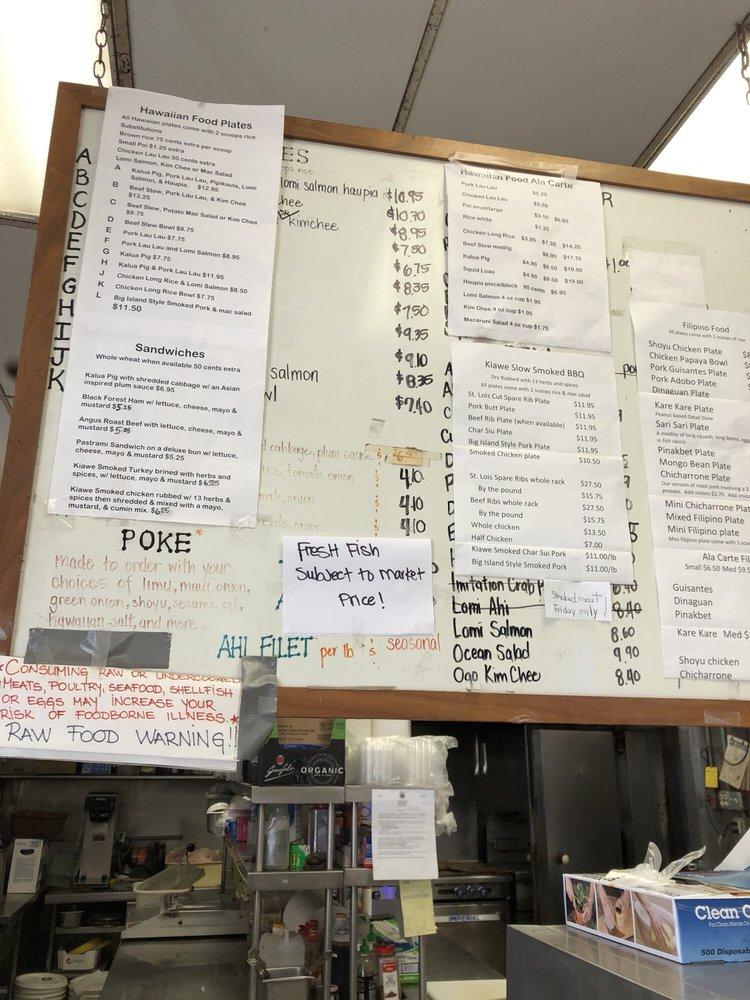 Hawaiian Food Plates
All Hawaiian plates come with 2 scoops rice.
Substitutions
Brown rice 75 cents extra per scoop
Small Poi $1.25 extra
Chicken Lau Lau 50 cents extra
Lomi Salmon, Kim Chee or Mac Salad
A Kalua Pig, Pork Lau Lau, Pipikaula, Lomi
Salmon, & Haupia. $12.95
B Beef Stew, Pork Lau Lau, & Kim Chee
$13.25
C Beef Stew, Potato Mac Salad or Kim Chee
$9.75
D Beef Stew Bowl $8.75
E Pork Lau Lau $7.75
F Pork Lau Lau and Lomi Salmon $8.95
G Kalua Pig $7.75
H Kalua Pig & Pork Lau Lau $11.95
J Chicken Long Rice & Lomi Salmon $8.50
K Chicken Long Rice Bowl $7.75
L Big Island Style Smoked Pork & mac salad
$11.50
Sandwiches
Whole wheat when available 50 cents extra
Kalua Pig with shredded cabbage w/ an Asian
inspired plum sauce $6.95
Black Forest Ham w/ lettuce, cheese, mayo &
mustard $5.25
Angus Roast Beef with lettuce, cheese, mayo &
mustard $5.25
Pastrami Sandwich on a deluxe bun w/ lettuce,
cheese, mayo & mustard $5.25
Kiawe Smoked Turkey brined with herbs and
spices, w/ lettuce, mayo & mustard $6.25
Kiawe Smoked chicken rubbed w/ 13 herbs &
spices then shredded & mixed with a mayo,
mustard, & cumin mix. $6.25
A
B
C
D
E
F
G
H
I
J
K
ES
lomi salmon haupia $10.95
hee $10.70
kimchee $8.95
$7.50
$6.75
$8.35
$7.50
$9.35
$9.10
salmon $8.35
wl $7.40
cabbage, plum sauce
tomato, onion 4.10
onion 4.10
tomato, onion 4.10
POKE*
made to order with your
choices of limu, maui onion,
green onion, shoyu, sesame oil,
hawaiian salt, and more..
FResH Fish
Subject to market
Price!
AHI FILET per lb seasonal
*CONSUMING RAW OR UNDERCOOKED
MEATS, POULTRY, SEAFOOD, SHELLFISH
OR EGGS MAY INCREASE YOUR
RISK OF FOODBORNE ILLNESS.*
RAW FOOD WARNING!!
Hawaiian Food Ala Carte
Pork Lau Lau $5.25
Chicken Lau Lau $5.50
Poi small/large $3.10 $6.95
Rice white $1.25
Chicken Long Rice $3.95 $7.35 $14.25
Beef Stew med/lg $8.90 $17.75
Kalua Pig $4.90 $9.50 $19.00
Squid Luau $4.90 $9.50 $19.00
Haupia piece/block 95 cents $6.95
Lomi Salmon 4 oz cup $1.95
Kim Chee 4 oz cup $1.95
Macaroni Salad 4 oz cup $1.75
Kiawe Slow Smoked BBQ
Dry Rubbed with 13 herbs and spices.
All plates come with 2 scoops rice & mac salad
St. Lois Cut Spare Rib Plate $11.95
Pork Butt Plate $11.95
Beef Rib Plate (when available) $11.95
Char Siu Plate $11.95
Big Island Style Pork Plate $11.95
Smoked Chicken plate $10.50
St. Lois Spare Ribs whole rack $27.50
By the pound $15.75
Beef Ribs whole rack $27.50
By the pound $15.75
Whole chicken $13.50
Half Chicken $7.00
Kiawe Smoked Char Sui Pork $11.00/lb
Big Island Style Smoked Pork $11.00/lb
Imitation Crab P
Smoked meat
Friday only!
Lomi Ahi 8.40
Lomi Salmon 8.60
Ocean Salad 9.90
Ogo Kim Chee 8.40
Filipino Food
All plates come with 2 scoops of rice
Shoyu Chicken Plate
Chicken Papaya Bowl
Pork Guisantes Plate
Pork Adobo Plate
Dinaguan Plate
Kare Kare Plate
Peanut based Oxtail Stew
Sari Sari Plate
A medley of long squash, long beans,
in fish sauce.
Pinakbet Plate
Mongo Bean Plate
Chicharrone Plate
Our version of roast pork involving a 3
process. Add onions $1.75 Add
Mini Chicharrone Plate
Mixed Filipino Plate
Mini Filipino Plate
Mini filipino plate come with 1 scoop
Ala Carte Fil
Small $6.50 Med $9.5
Guisantes
Dinaguan
Pinakbet
Kare Kare Med $
Shoyu chicken
Chicharrone
ORGANIC
IMPERIAL
Clean
For Clean Hands
500 Disposab